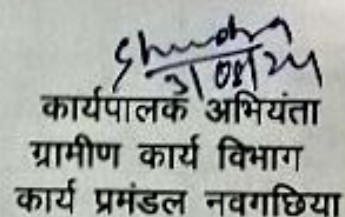 कार्यपालक अभियंता
ग्रामीण कार्य विभाग
कार्य प्रमंडल नवगछिया